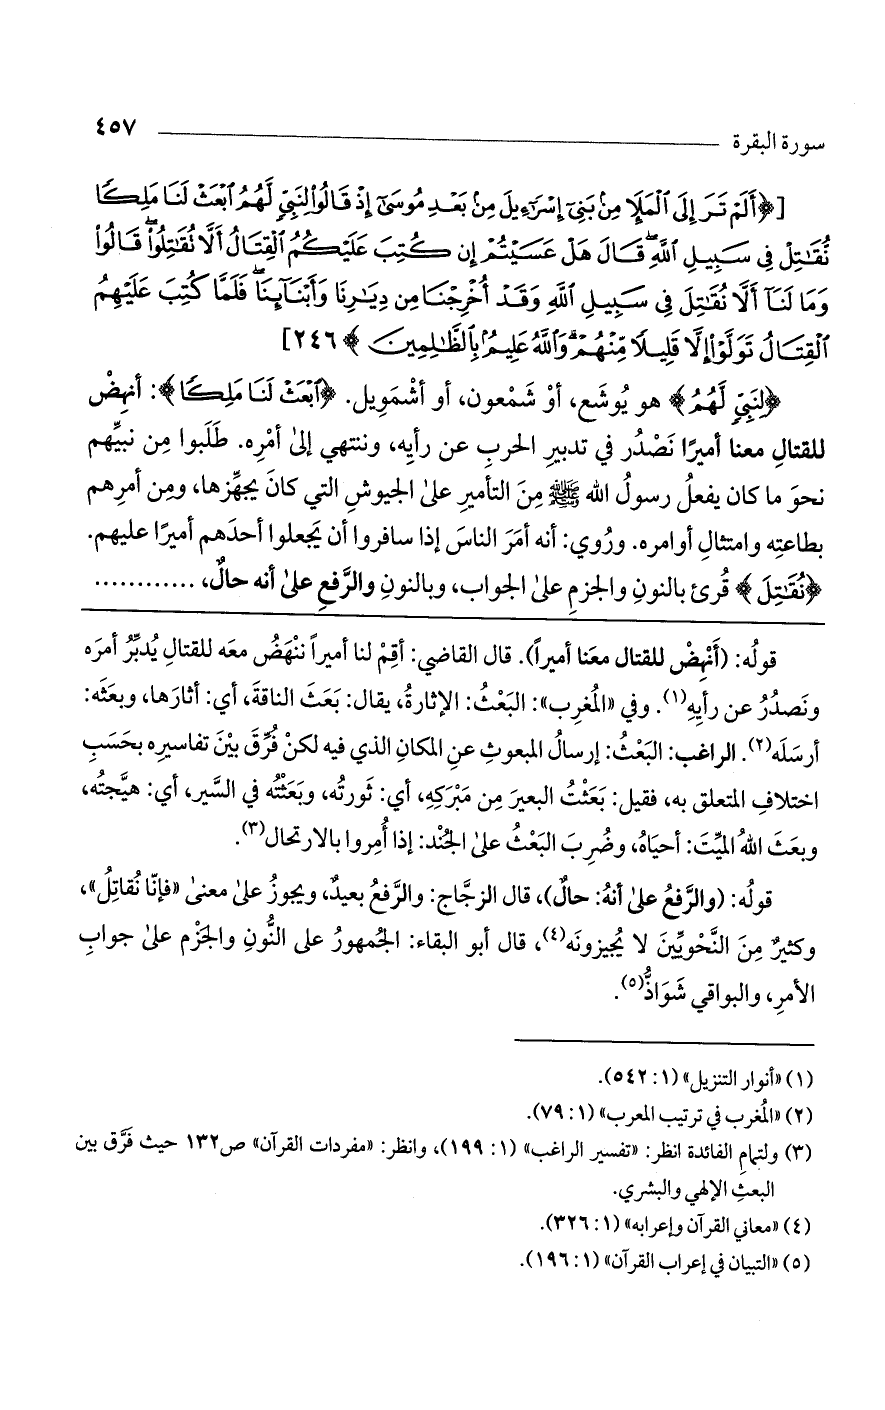 سورة البقرة ٤٥٧
[﴿أَلَمْ تَرَ إِلَى ٱلْمَلَإِ مِنۢ بَنِىٓ إِسْرَٰٓءِيلَ مِنۢ بَعْدِ مُوسَىٰٓ إِذْ قَالُوا۟ لِنَبِىٍّ لَّهُمُ ٱبْعَثْ لَنَا مَلِكًا
نُّقَٰتِلْ فِى سَبِيلِ ٱللَّهِ ۖ قَالَ هَلْ عَسَيْتُمْ إِن كُتِبَ عَلَيْكُمُ ٱلْقِتَالُ أَلَّا تُقَٰتِلُوا۟ ۖ قَالُوا۟
وَمَا لَنَآ أَلَّا نُقَٰتِلَ فِى سَبِيلِ ٱللَّهِ وَقَدْ أُخْرِجْنَا مِن دِيَٰرِنَا وَأَبْنَآئِنَا ۖ فَلَمَّا كُتِبَ عَلَيْهِمُ
ٱلْقِتَالُ تَوَلَّوْا۟ إِلَّا قَلِيلًا مِّنْهُمْ ۗ وَٱللَّهُ عَلِيمٌۢ بِٱلظَّٰلِمِينَ﴾ ٢٤٦]
﴿لِنَبِىٍّ لَّهُمُ﴾ هو يُوشَع، أوْ شَمْعون، أو أشْمَوِيل. ﴿ٱبْعَثْ لَنَا مَلِكًا﴾: أنهِضْ
للقتالِ معنا أميرًا نَصْدُر في تدبيرِ الحربِ عن رأيِه، وننتهي إلىٰ أمْرِه. طَلَبوا مِن نبيِّهم
نحوَ ما كان يفعلُ رسولُ الله ﷺ مِنَ التأميرِ علىٰ الجيوشِ التي كانَ يجهِّزها، ومِن أمرِهم
بطاعتِه وامتثالِ أوامره. ورُوي: أنه أمَرَ الناسَ إذا سافروا أن يَجعلوا أحدَهم أميرًا عليهم.
﴿نُقَٰتِلَ﴾ قُرئ بالنونِ والجزمِ علىٰ الجواب، وبالنونِ والرَّفعِ علىٰ أنه حالٌ، ............
قولُه: (أَنْهِضْ للقتال معَنا أميراً). قال القاضي: أقِمْ لنا أميراً ننْهَضُ معه للقتالِ يُدبِّرُ أمرَه
ونَصدُرُ عن رأيِهِ(١). وفي «المُغرِب»: البَعْثُ: الإثارةُ، يقال: بَعَثَ الناقةَ، أي: أثارَها، وبعَثَه:
أرسَلَه(٢). الراغب: البَعْثُ: إرسالُ المبعوثِ عنِ المكانِ الذي فيه لكنْ فُرِّقَ بيْنَ تفاسيرِه بحَسَبِ
اختلافِ المتعلق به، فقيل: بَعَثْتُ البعيرَ مِن مَبْرَكِهِ، أي: ثَورتُه، وبَعَثْتُه في السَّير، أي: هيَّجتُه،
وبعَثَ اللهُ الميِّتَ: أحيَاهُ، وضُرِبَ البَعْثُ علىٰ الجُنْد: إذا أُمِروا بالارتحال(٣).
قولُه: (والرَّفعُ علىٰ أنهُ: حالٌ)، قال الزجَّاج: والرَّفعُ بعيدٌ، ويجوزُ علىٰ معنىٰ «فإنّا نُقاتِلُ»،
وكثيرٌ مِنَ النَّحْويِّينَ لا يُجيزونَه(٤)، قال أبو البقاء: الجُمهورُ على النُّونِ والجَزْم علىٰ جوابِ
الأمرِ، والبواقي شَوَاذُّ(٥).
(١) «أنوار التنزيل» (١: ٥٤٢).
(٢) «المُغرب في ترتيب المعرب» (١: ٧٩).
(٣) ولتمامِ الفائدة انظر: «تفسير الراغب» (١: ١٩٩)، وانظر: «مفردات القرآن» ص١٣٢ حيث فَرَّق بين
البعثِ الإلهي والبشري.
(٤) «معاني القرآن وإعرابه» (١: ٣٢٦).
(٥) «التبيان في إعراب القرآن» (١: ١٩٦).